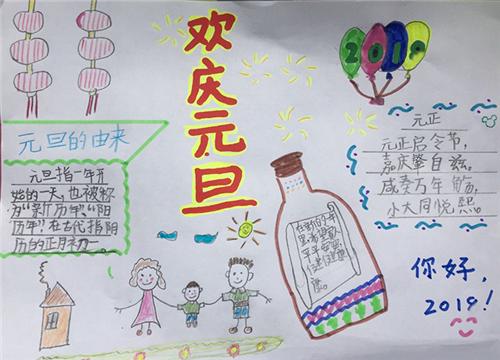 欢庆元旦
2019
元旦的由来
元旦指一年开
始的一天,也被称
为“新历年”“阳
历年”在古代指阴
历的正月初一
元正
元正启令节,
嘉庆肇自兹,
咸奏万年觞,
小大同悦熙。
在新的一年
里希望家人
平平安安
你好,
2019!